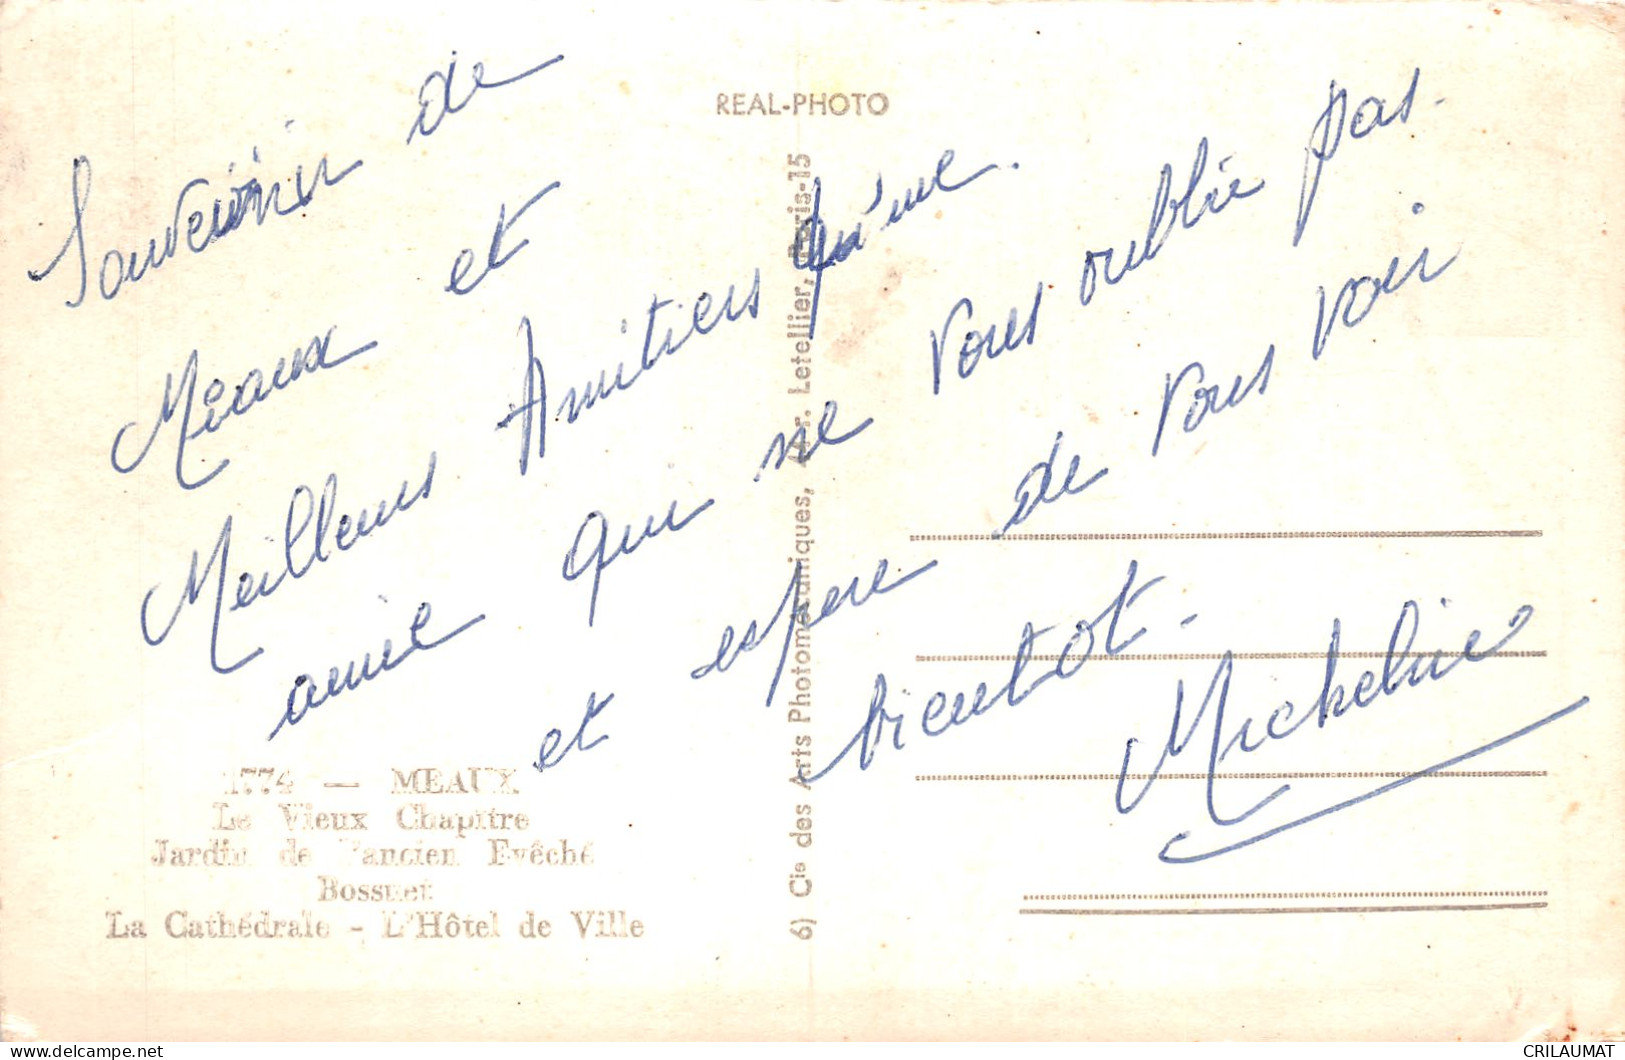 REAL-PHOTO
Souvenir de
Meaux et
Meilleurs Amitiers qu'une
amie qui ne vous oublie pas.
et espere de vous voir
bientot.
Micheline
1774 — MEAUX
Le Vieux Chapitre
Jardin de l'ancien Evêché
Bossuet
La Cathédrale - L'Hôtel de Ville
6) Cie des Arts Photomécaniques, Letellier, Paris-15
CRILAUMAT